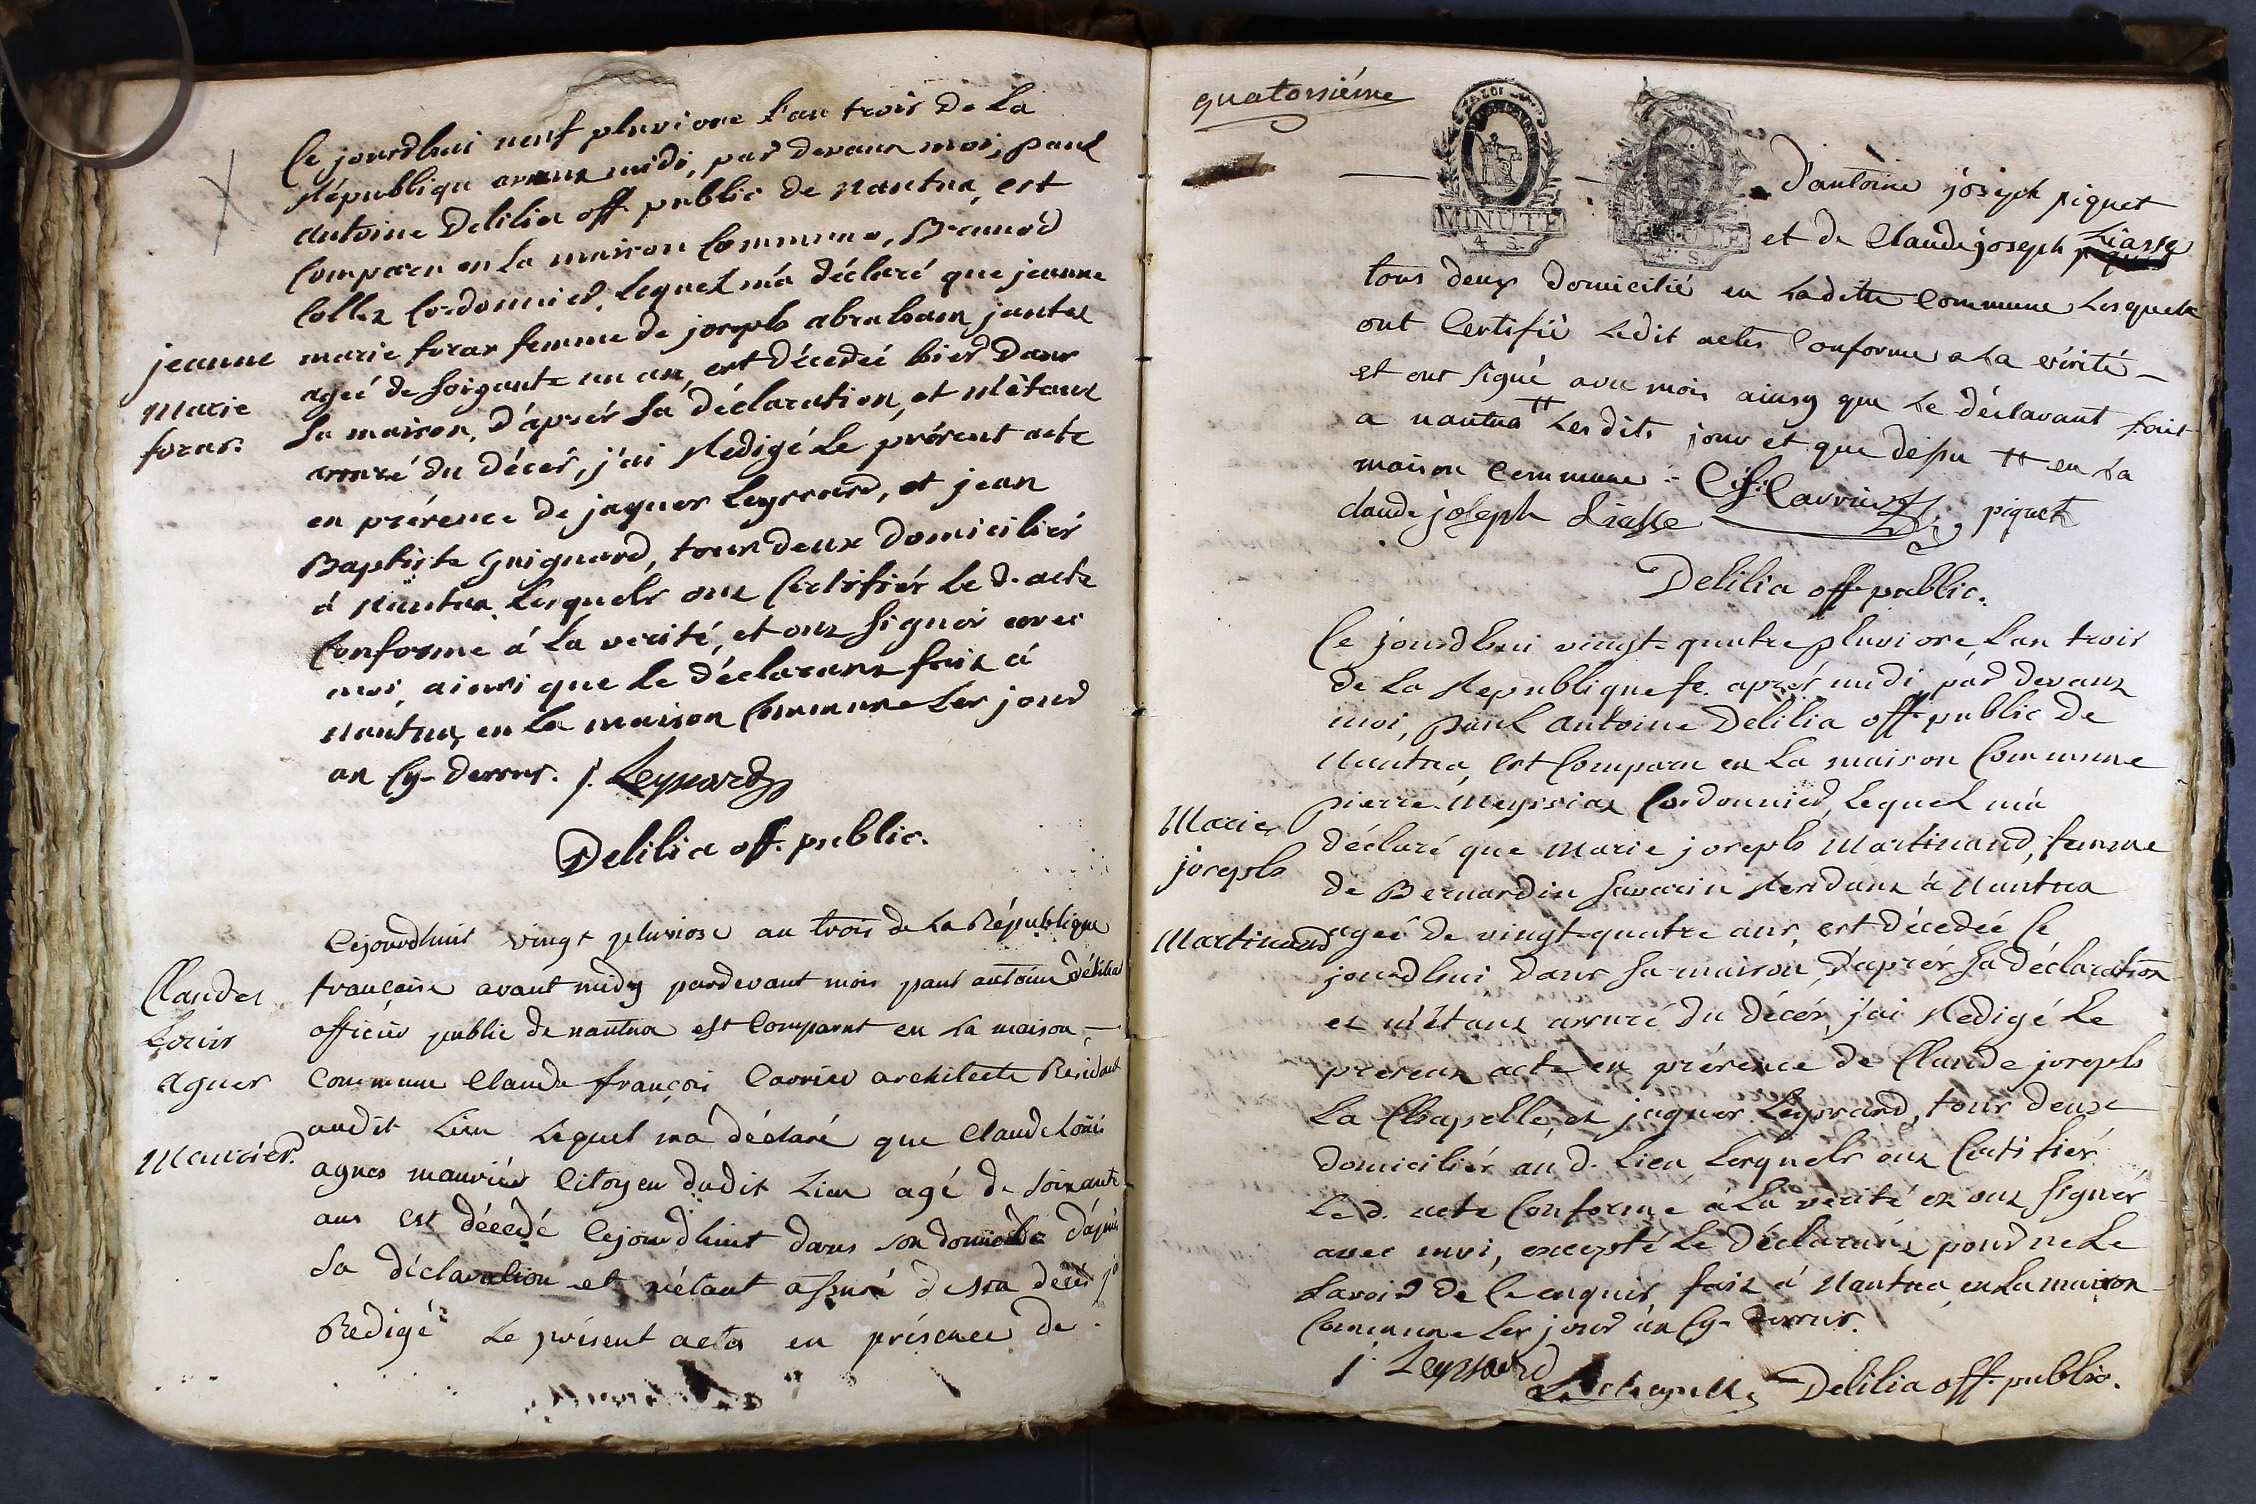 Ce jourdhui neuf pluviose l'an trois de La
République avant midi, par devant moi, paul
antoine Delilia off. public de nantua, est
Comparu en La maison Commune, Bernard
Collet Cordonnier, Lequel m'a déclaré que jeanne
marie foras femme de joseph abraham jantet
agée de soixante un an, est décédée hier dans
sa maison, d'après sa déclaration, et m'étant
assuré du décés, j'ai Redigé Le présent acte
en présence de jaques Leyssard, et jean
Baptiste Guignard, tous deux domiciliés
á Nantua Lesquels ont Certifiés Le d. acte
Conforme á La verité, et ont signés avec
moi, ainsi que Le déclarant fait á
Nantua, en La maison Commune Les jour
an Cy-dessus. j. Leyssard
Delilia off. public.
jeanne
Marie
foras.
Cejourdhuit vingt pluviose an trois de La République
française avant midy pardevant mois paul antoine délilia
officier public de nantua est Comparut en La maison -
Commune Claude françois Cavrier architecte Residant
audit Lieu Lequel ma déclaré que Claude Loüis
agnes mauriér Citoyen dudit Lieu agé de soixante
ans est décedé Cejourdhuit dans son domicile d'après
Sa déclaration et m'étant assuré de son decés j'ai
Redigé Le présent acte en présence de
Claudes
Louis
agnes
Mauriér.
quatorsiéme
MINUTE
4. S.
MINUTE
4. S.
d'antoine joseph piquet
et de Claude joseph Liasse
tous deux domicilié en Laditte Commune Lesquels
ont Certifié Ledit actes Conforme a La vérité -
et ont signé avec mois ainsy que Le déclarant fait
a nantua tt Lesdits jour et que dessu tt en La
maison Commune : C. f. Cavrier piquet
claude joseph Liasse
Delilia off. public.
Ce jourdhui vingt-quatre pluviose L'an trois
de La Republique fe. aprés midi par devant
moi, paul antoine Delilia off public de
Nantua, est Comparu en La maison Commune
pierre Meyssiat Cordonnier, Lequel m'a
déclaré que Marie joseph Martinand, femme
de Bernardin Savarin Residant á Nantua
agée de vingt-quatre ans, est décedée Ce
jourdhui dans sa maison, d'après sa déclaration
et m'étant assuré du décés, j'ai Redigé Le
présent acte en présence de Claude joseph
La Chapelle, et jaques Leyssard, tous deux
domiciliés au d. Lieu Lesquels ont Certifiés
Le d. acte Conforme á La verité et ont signés
avec moi, excepté Le déclarant pour ne Le
savoir de Ce enquis fait á Nantua, en La maison
Commune Les jour an Cy-dessus.
j. Leyssard Lachapelle Delilia off. public.
Marie
joseph
Martinand